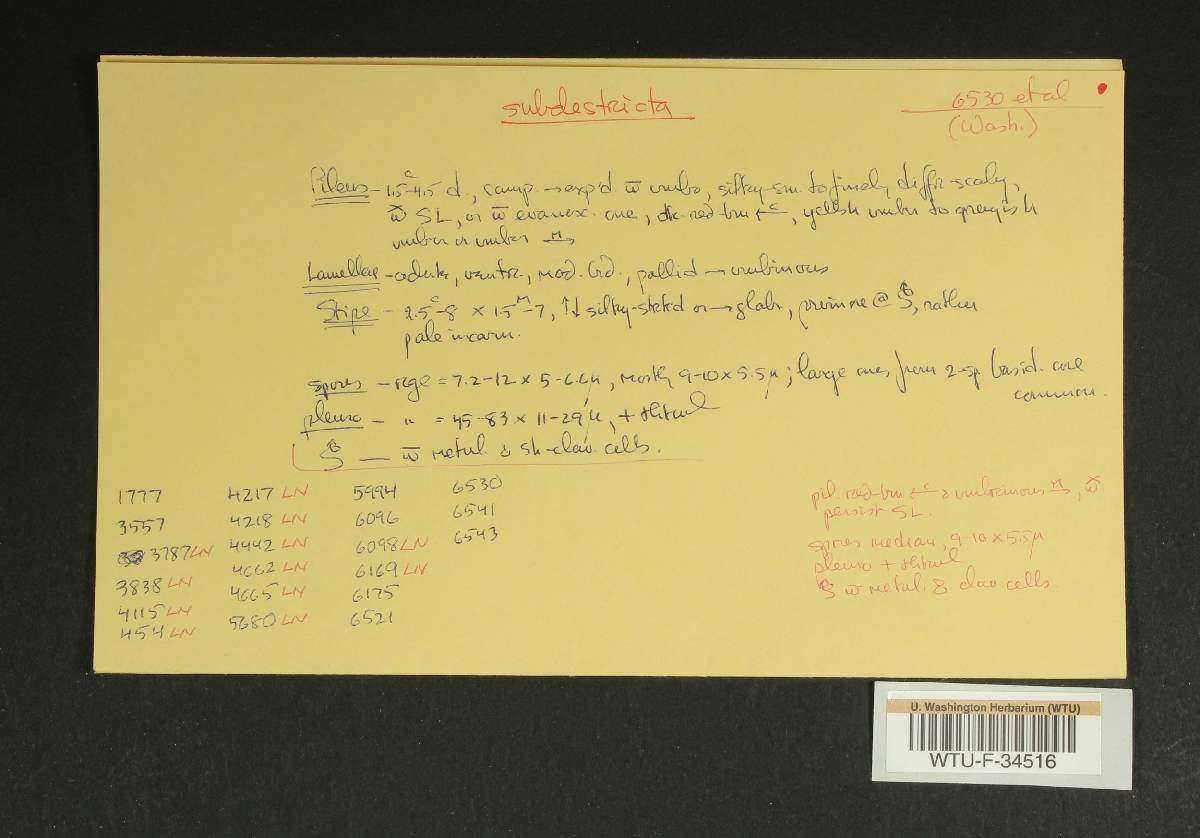 subdestricta
6530 et al
(Wash.)
Pileus - 1.5-4.5 d, camp. → exp'd w̄ umbo, silky-sm to finely diffr-scaly,
w̄ SL, or w̄ evanesc. one, dk red-brn, yellsh umber to greyish
umber or umber M
Lamellae - adnate, ventr., mod. brd., pallid → umbrinous
Stipe - 2.5-8 × 1.5-7, ↑↓ silky-strtd or → glabr, pruinose @, rather
pale incarn.
spores - rge = 7.2-12 × 5-6.6µ, mostly 9-10 × 5.5µ; large ones from 2-sp basid. are
common.
pleuro - " = 45-83 × 11-29µ, + thkwl
w̄ metul. & sh-clav. cells.
1777 4217 LN 5994 6530
3557 4218 LN 6096 6541
3787 LN 4442 LN 6098 LN 6543
3838 LN 4662 LN 6169 LN
4115 LN 4665 LN 6175
454 LN 5680 LN 6521
pil red-brn & umbrinous M, w̄
persist SL.
spores median, 9-10 × 5.5µ
pleuro + thkwl
w̄ metul. & clav. cells.
U. Washington Herbarium (WTU)
WTU-F-34516